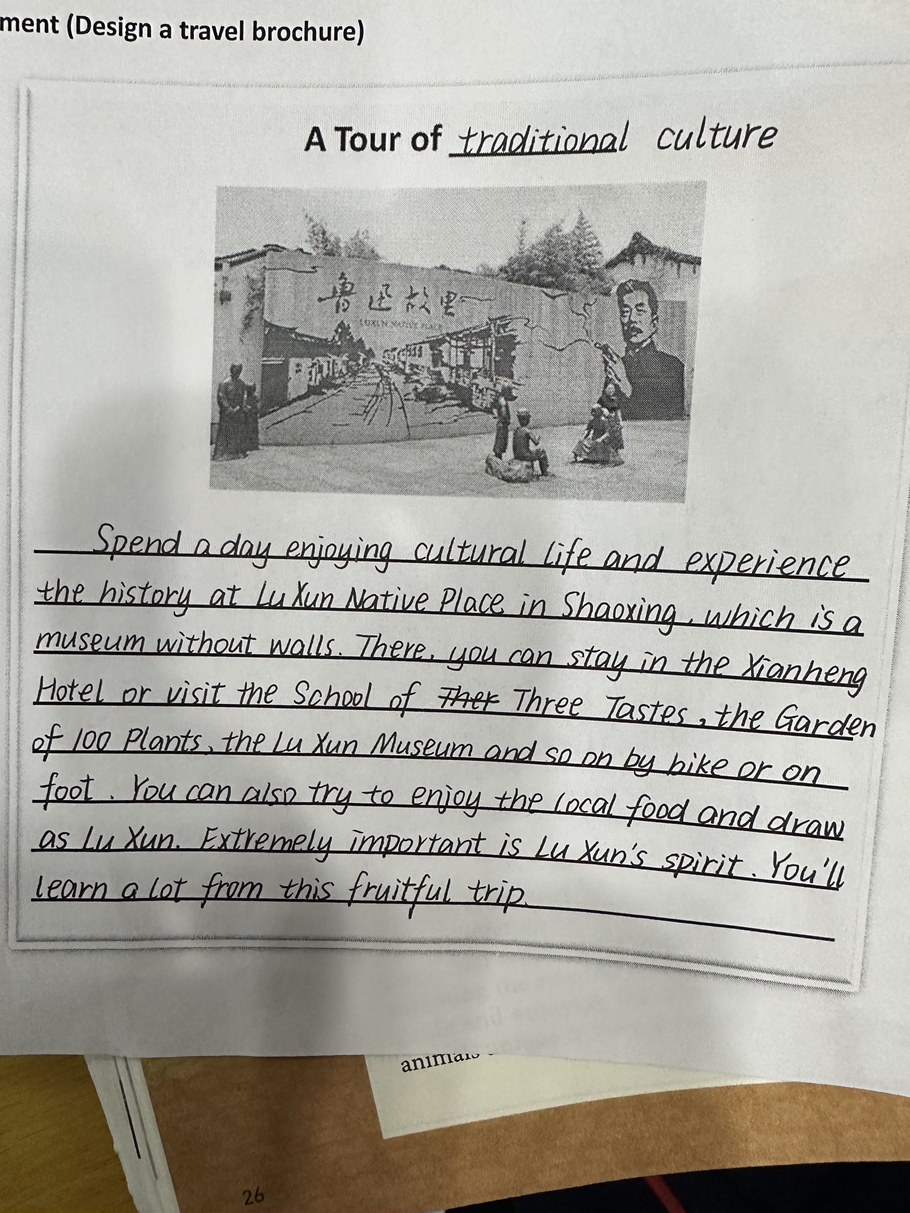 ment (Design a travel brochure)
A Tour of traditional culture
鲁迅故里
LUXUN NATIVE PLACE
Spend a day enjoying cultural life and experience
the history at Lu Xun Native Place in Shaoxing, which is a
museum without walls. There, you can stay in the Xianheng
Hotel or visit the School of Ther Three Tastes, the Garden
of 100 Plants, the Lu Xun Museum and so on by bike or on
foot. You can also try to enjoy the local food and draw
as Lu Xun. Extremely important is Lu Xun's spirit. You'll
learn a lot from this fruitful trip.
animals
26